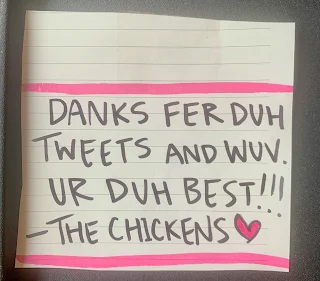 DANKS FER DUH
TWEETS AND WUV.
UR DUH BEST!!!
-THE CHICKENS